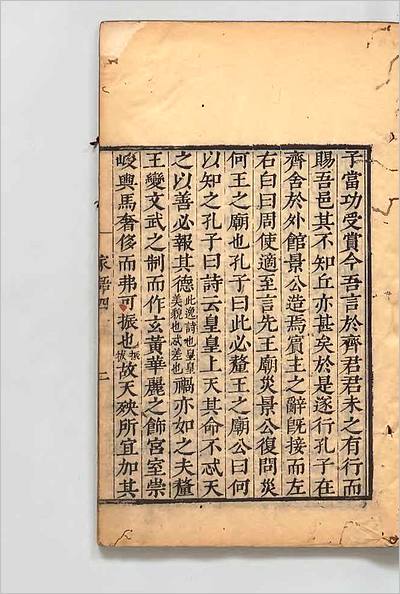 子當功受賞今吾言於齊君君未之有行而
賜吾邑其不知丘亦甚矣於是遂行孔子在
齊舍於外館景公造焉賓主之辭既接而左
右白曰周使適至言先王廟災景公復問災
何王之廟也孔子曰此必釐王之廟公曰何
以知之孔子曰詩云皇皇上天其命不忒天
之以善必報其德此逸詩也皇皇美貌也忒差也禍亦如之夫釐
王變文武之制而作玄黃華麗之飾宮室崇
峻輿馬奢侈而弗可振也振拔故天殃所宜加其
家語四
二